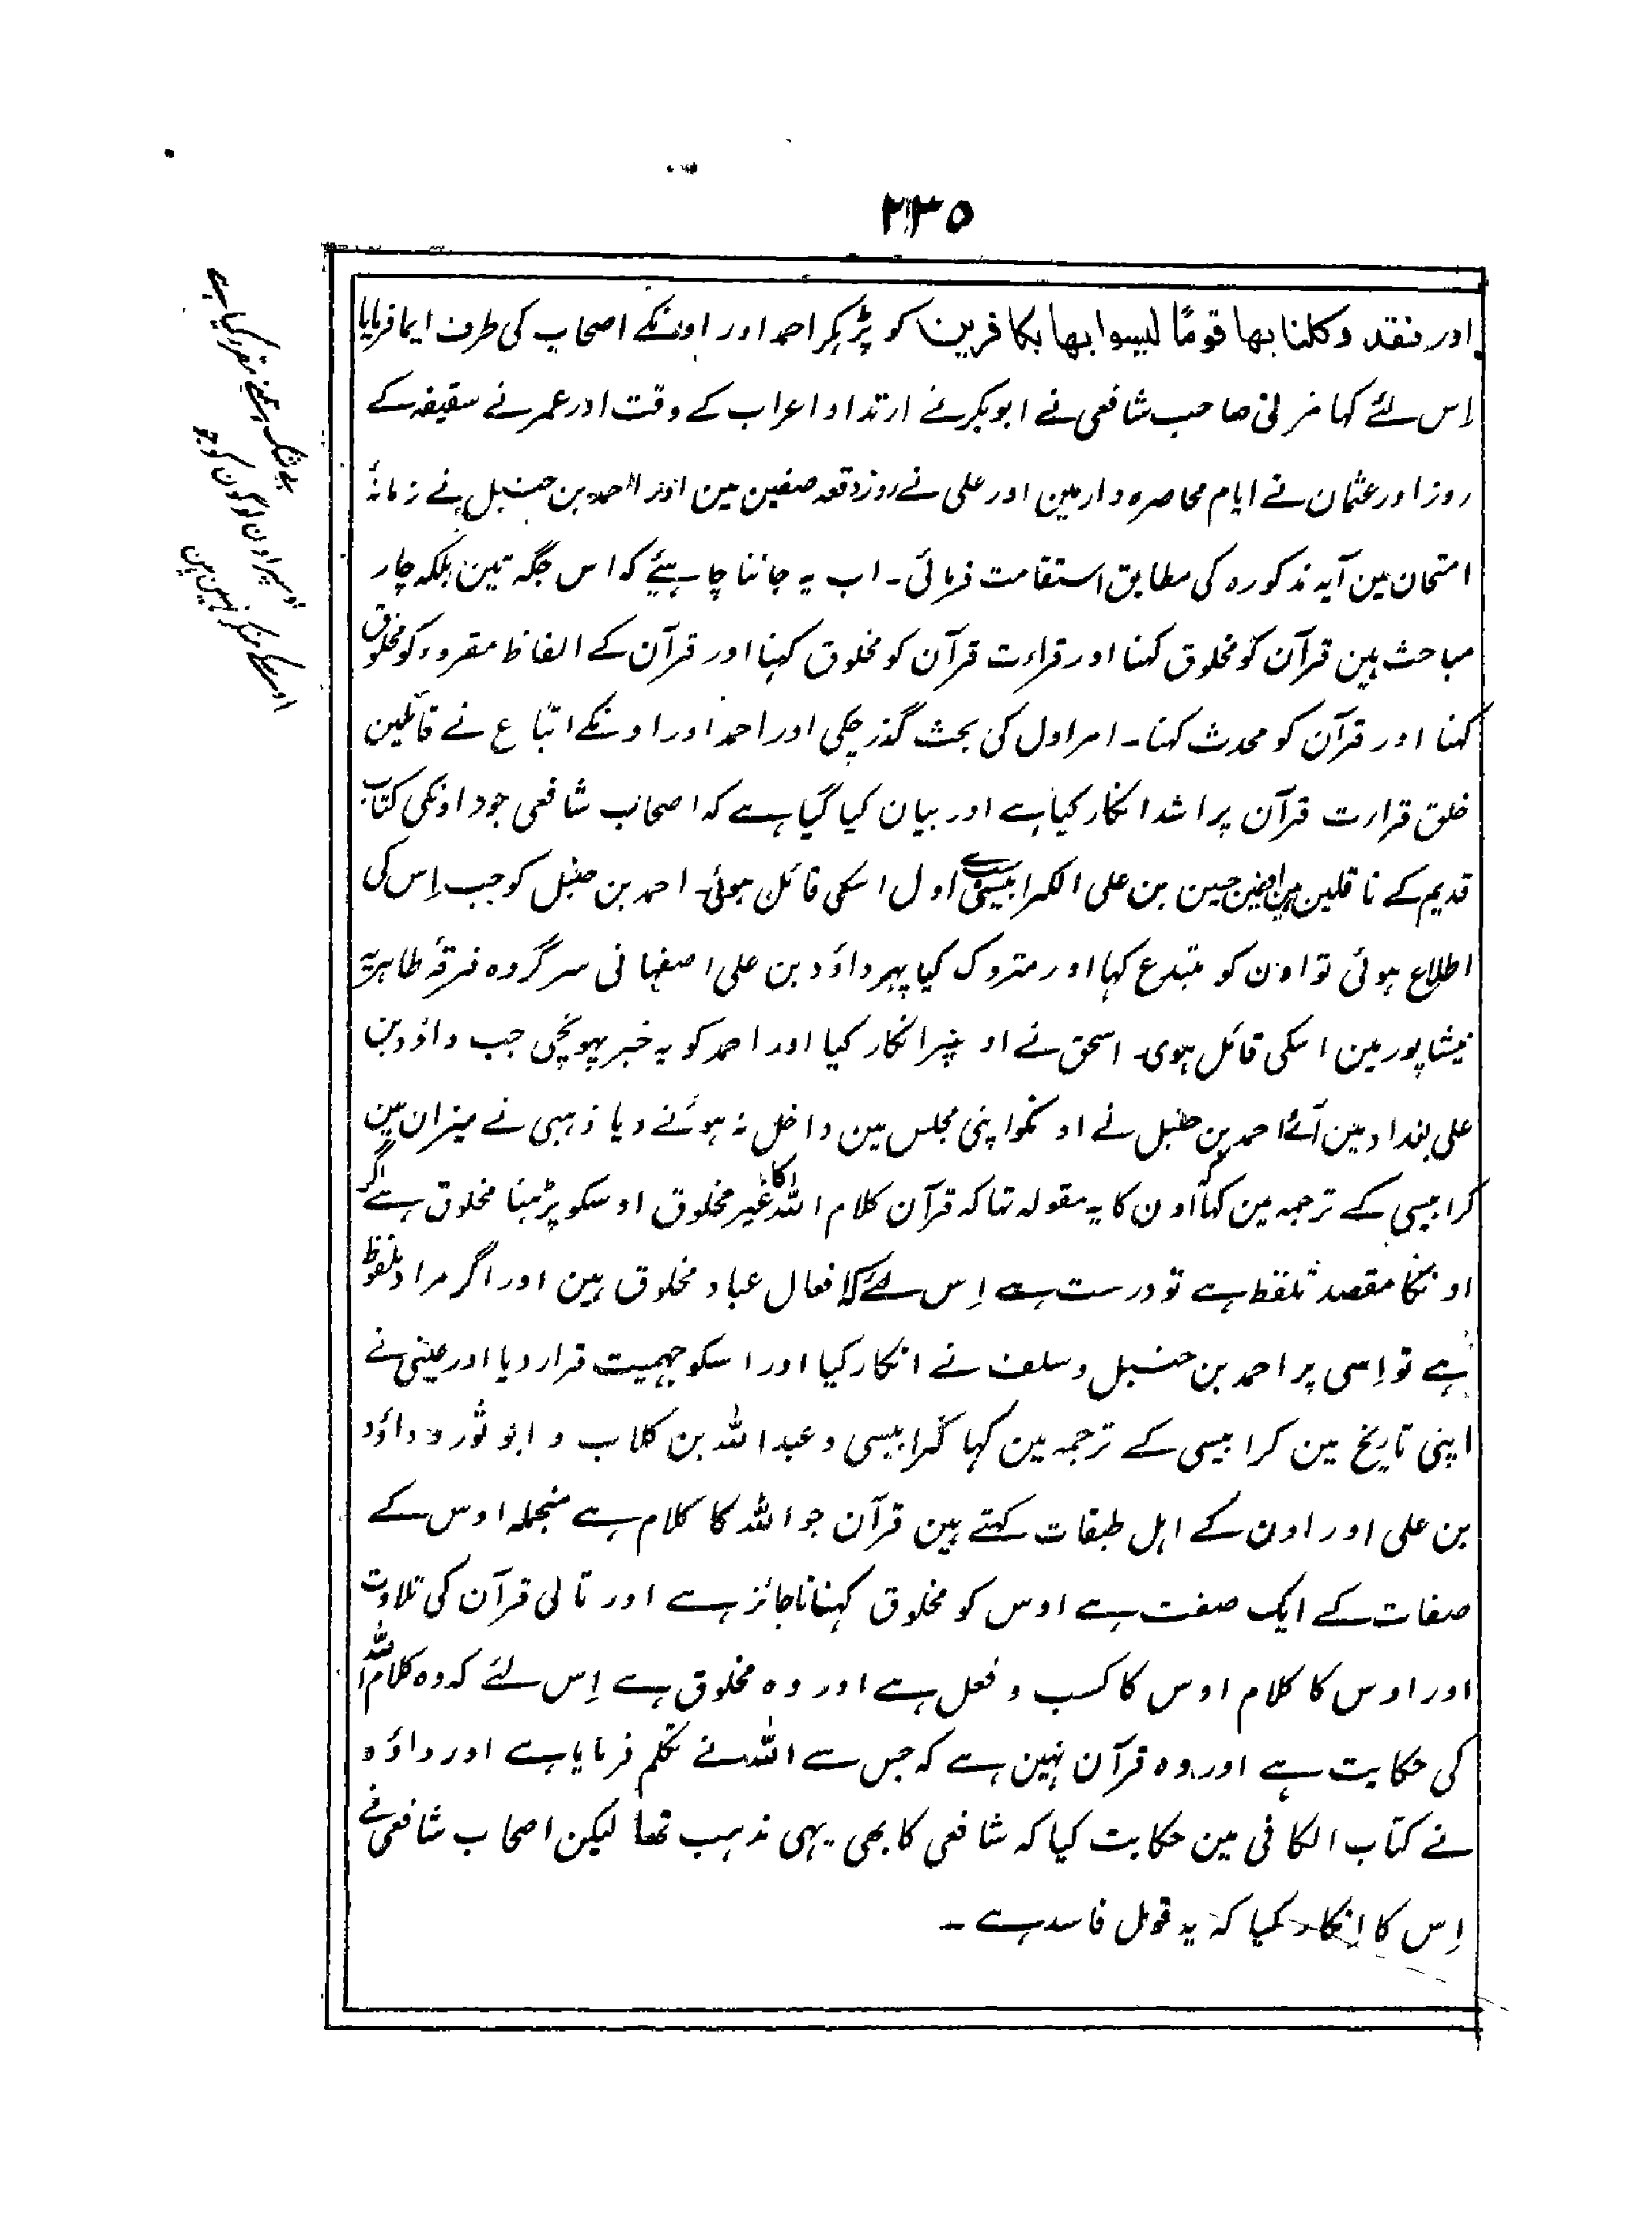 ۲۳۵
اور فقد وکلنا بھا قومًا لیسوا بھا بکافرین کو پڑہکر احمد اور اونکے اصحاب کی طرف ایما فرمایا
اِس لئے کہا مزنی صاحب شافعی نے ابوبکر نے ارتداد اعراب کے وقت اور عمر نے سقیفہ کے
روز اور عثمان نے ایام محاصرہ دار مین اور علی نے روز وقعہ صفین مین اور احمد بن حنبل نے زمانۂ
امتحان مین آیہ مذکورہ کی مطابق استقامت فرمائی۔ اب یہ جاننا چاہیئے کہ اس جگہ تین بلکہ چار
مباحث ہین قرآن کو مخلوق کہنا اور قراءت قرآن کو مخلوق کہنا اور قرآن کے الفاظ مقروء کو مخلوق
کہنا اور قرآن کو محدث کہنا۔ امر اول کی بحث گذر چکی اور احمد اور اونکے اتباع نے قائلین
خلق قراءت قرآن پر اشد انکار کیا ہے اور بیان کیا گیا ہے کہ اصحاب شافعی جود اونکی کتاب
قدیم کے ناقلین ہین حسین بن علی الکرابیسی اول اسکی قائل ہوئی۔ احمد بن حنبل کو جب اِس کی
اطلاع ہوئی تو اون کو مبتدع کہا اور متروک کیا پہر داؤد بن علی اصفہانی سرگروہ فرقۂ ظاہریہ
نیشاپور مین اسکی قائل ہوی۔ اسحق نے اونپر انکار کیا اور احمد کو یہ خبر پہونچی جب داؤد بن
علی بغداد مین آئے احمد بن حنبل نے اونکو اپنی مجلس مین داخل نہ ہونے دیا ذہبی نے میزان مین
کرابیسی کے ترجمہ مین کہا کہ اون کا یہ مقولہ تہا کہ قرآن کلام اللہ کا غیر مخلوق اوسکو پڑہنا مخلوق ہے اگر
اونکا مقصد تلفظ ہے تو درست ہے اِس لئے کہ افعال عباد مخلوق ہین اور اگر مراد ملفوظ
ہے تو اِسی پر احمد بن حنبل و سلف نے انکار کیا اور اسکو جہمیت قرار دیا اور عینی نے
اپنی تاریخ مین کرابیسی کے ترجمہ مین کہا کرابیسی و عبداللہ بن کلاب و ابو ثور و داؤد
بن علی اور اون کے اہل طبقات کہتے ہین قرآن جو اللہ کا کلام ہے منجملہ اوس کے
صفات کے ایک صفت ہے اوس کو مخلوق کہنا ناجائز ہے اور تالی قرآن کی تلاوت
اور اوس کا کلام اوس کا کسب و فعل ہے اور وہ مخلوق ہے اِس لئے کہ وہ کلام اللہ
کی حکایت ہے اور وہ قرآن نہین ہے کہ جس سے اللہ نے تکلم فرمایا ہے اور داؤد
نے کتاب الکافی مین حکایت کیا کہ شافعی کا بھی یہی مذہب تھا لیکن اصحاب شافعی نے
اِس کا انکار کیا کہ یہ قول فاسد ہے ۔
بے شک ہمنے مقرر کیا ہے
اوسپر اون لوگون کو جو
اوسکے منکر نہین ہین